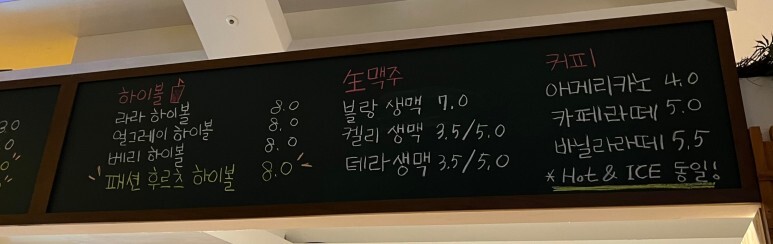 하이볼
라라 하이볼 8.0
얼그레이 하이볼 8.0
베리 하이볼 8.0
패션 후르츠 하이볼 8.0
生맥주
블랑 생맥 7.0
켈리 생맥 3.5/5.0
테라 생맥 3.5/5.0
커피
아메리카노 4.0
카페라떼 5.0
바닐라라떼 5.5
* Hot & ICE 동일!